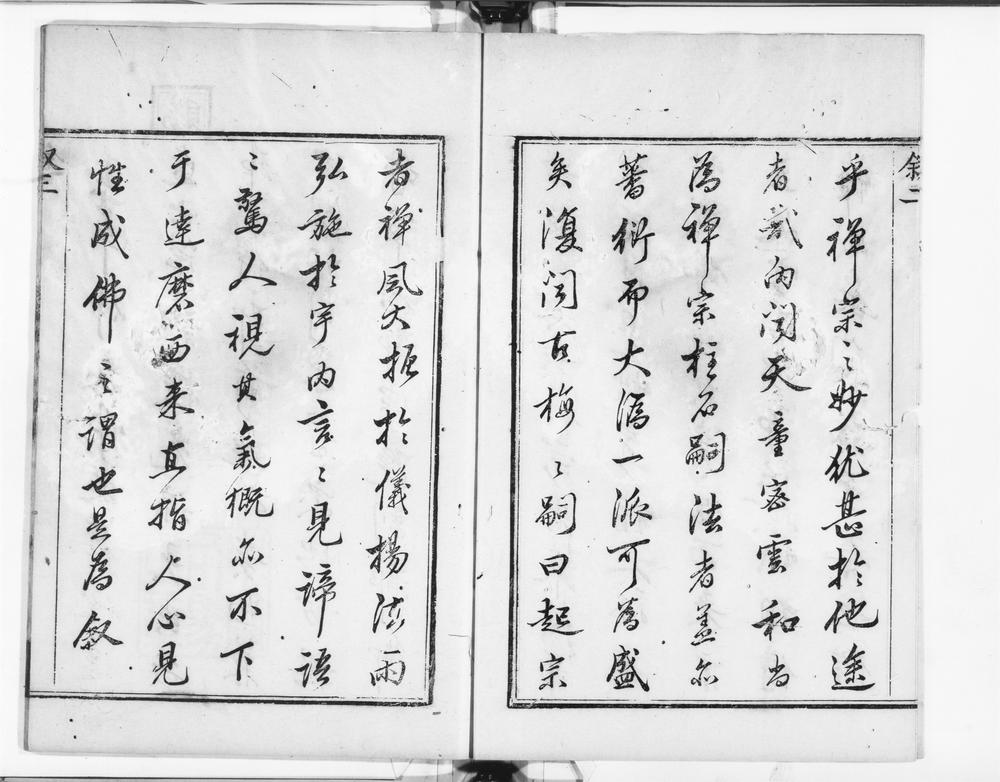 叙二
乎禅宗之妙犹甚於他途
者哉内閲天童密雲和尚
為禅宗柱石嗣法者盖亦
蕃衍而大溈一派可為盛
矣復閲古梅々嗣曰起宗
者禅風大振於儀揚法雨
弘施於宇内言々見諦語
々驚人視其氣概亦不下
于達磨西来直指人心見
性成佛之謂也是為叙
叙三